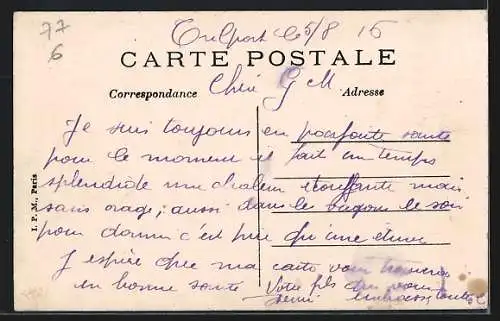 77
6
Trilport le 5/8 15
CARTE POSTALE
Correspondance
Adresse
Chère G M
Je suis toujours en parfaite santé
pour le moment il fait un temps
splendide une chaleur étouffante mais
sans orage; aussi dans le wagon le soir
pour dormir c'est pire qu'une étuve
J espère que ma carte vous trouvera
en bonne santé Votre fils qui vous
embrasse
I. P. M., Paris